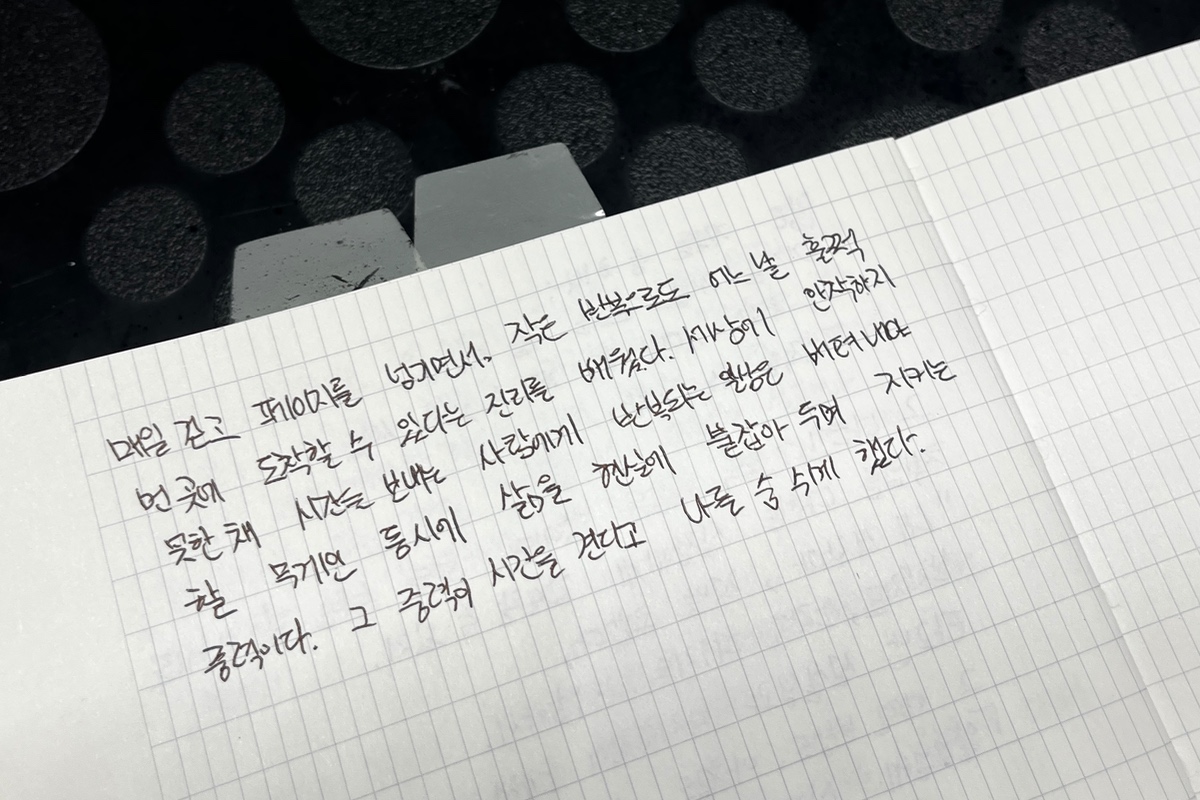 매일 걷고 페이지를 넘기면서, 작은 반복으로도 어느 날 훌쩍
먼 곳에 도착할 수 있다는 진리를 배웠다. 세상에 안착하지
못한 채 시간을 보내는 사람에게 반복되는 일상은 버텨내야
할 무게인 동시에 삶을 현실에 붙잡아 두며 지키는
중력이다. 그 중력이 시간을 견디고 나를 숨 쉬게 했다.